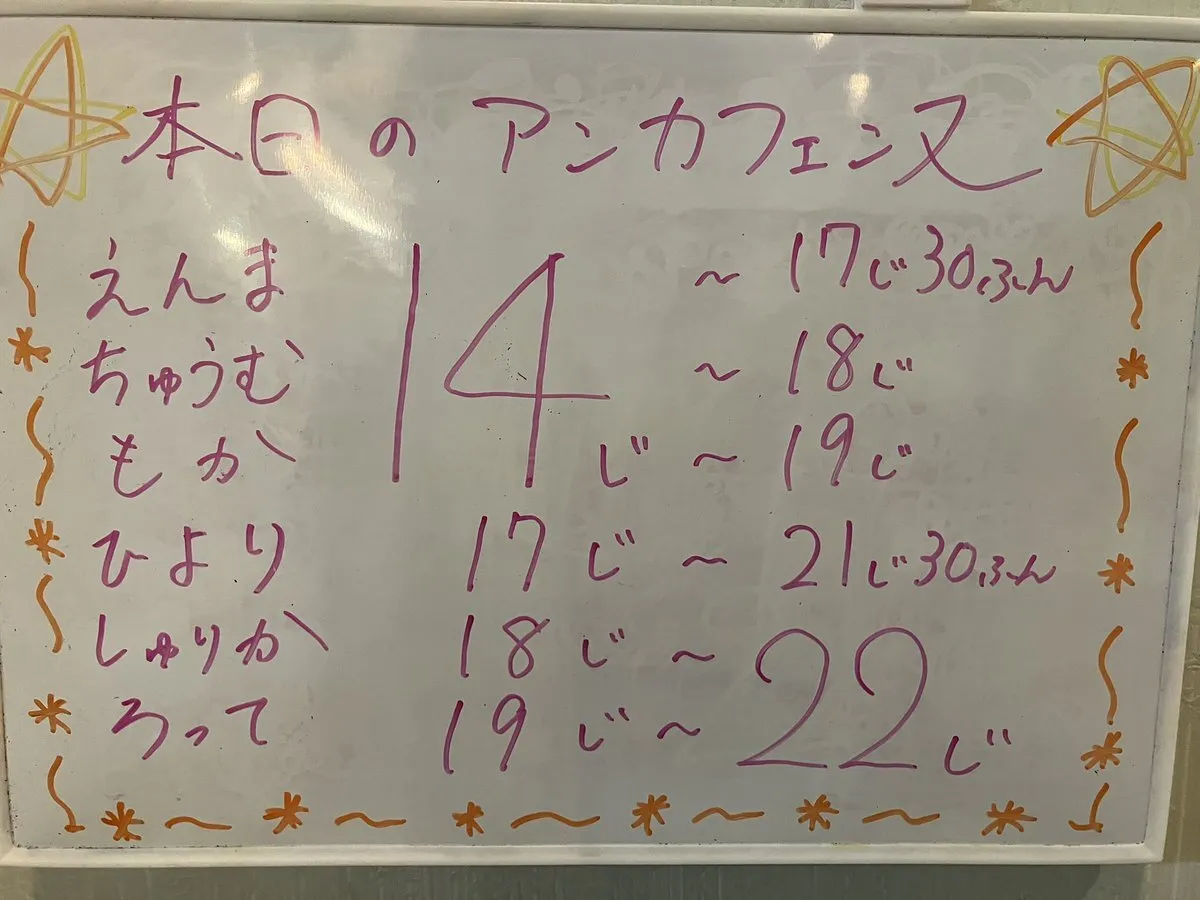 本日のアンカフェンヌ
えんま 14じ ~ 17じ30ふん
ちゅうむ ~ 18じ
もか ~ 19じ
ひより 17じ ~ 21じ30ふん
しゅりか 18じ ~ 22じ
ろって 19じ ~